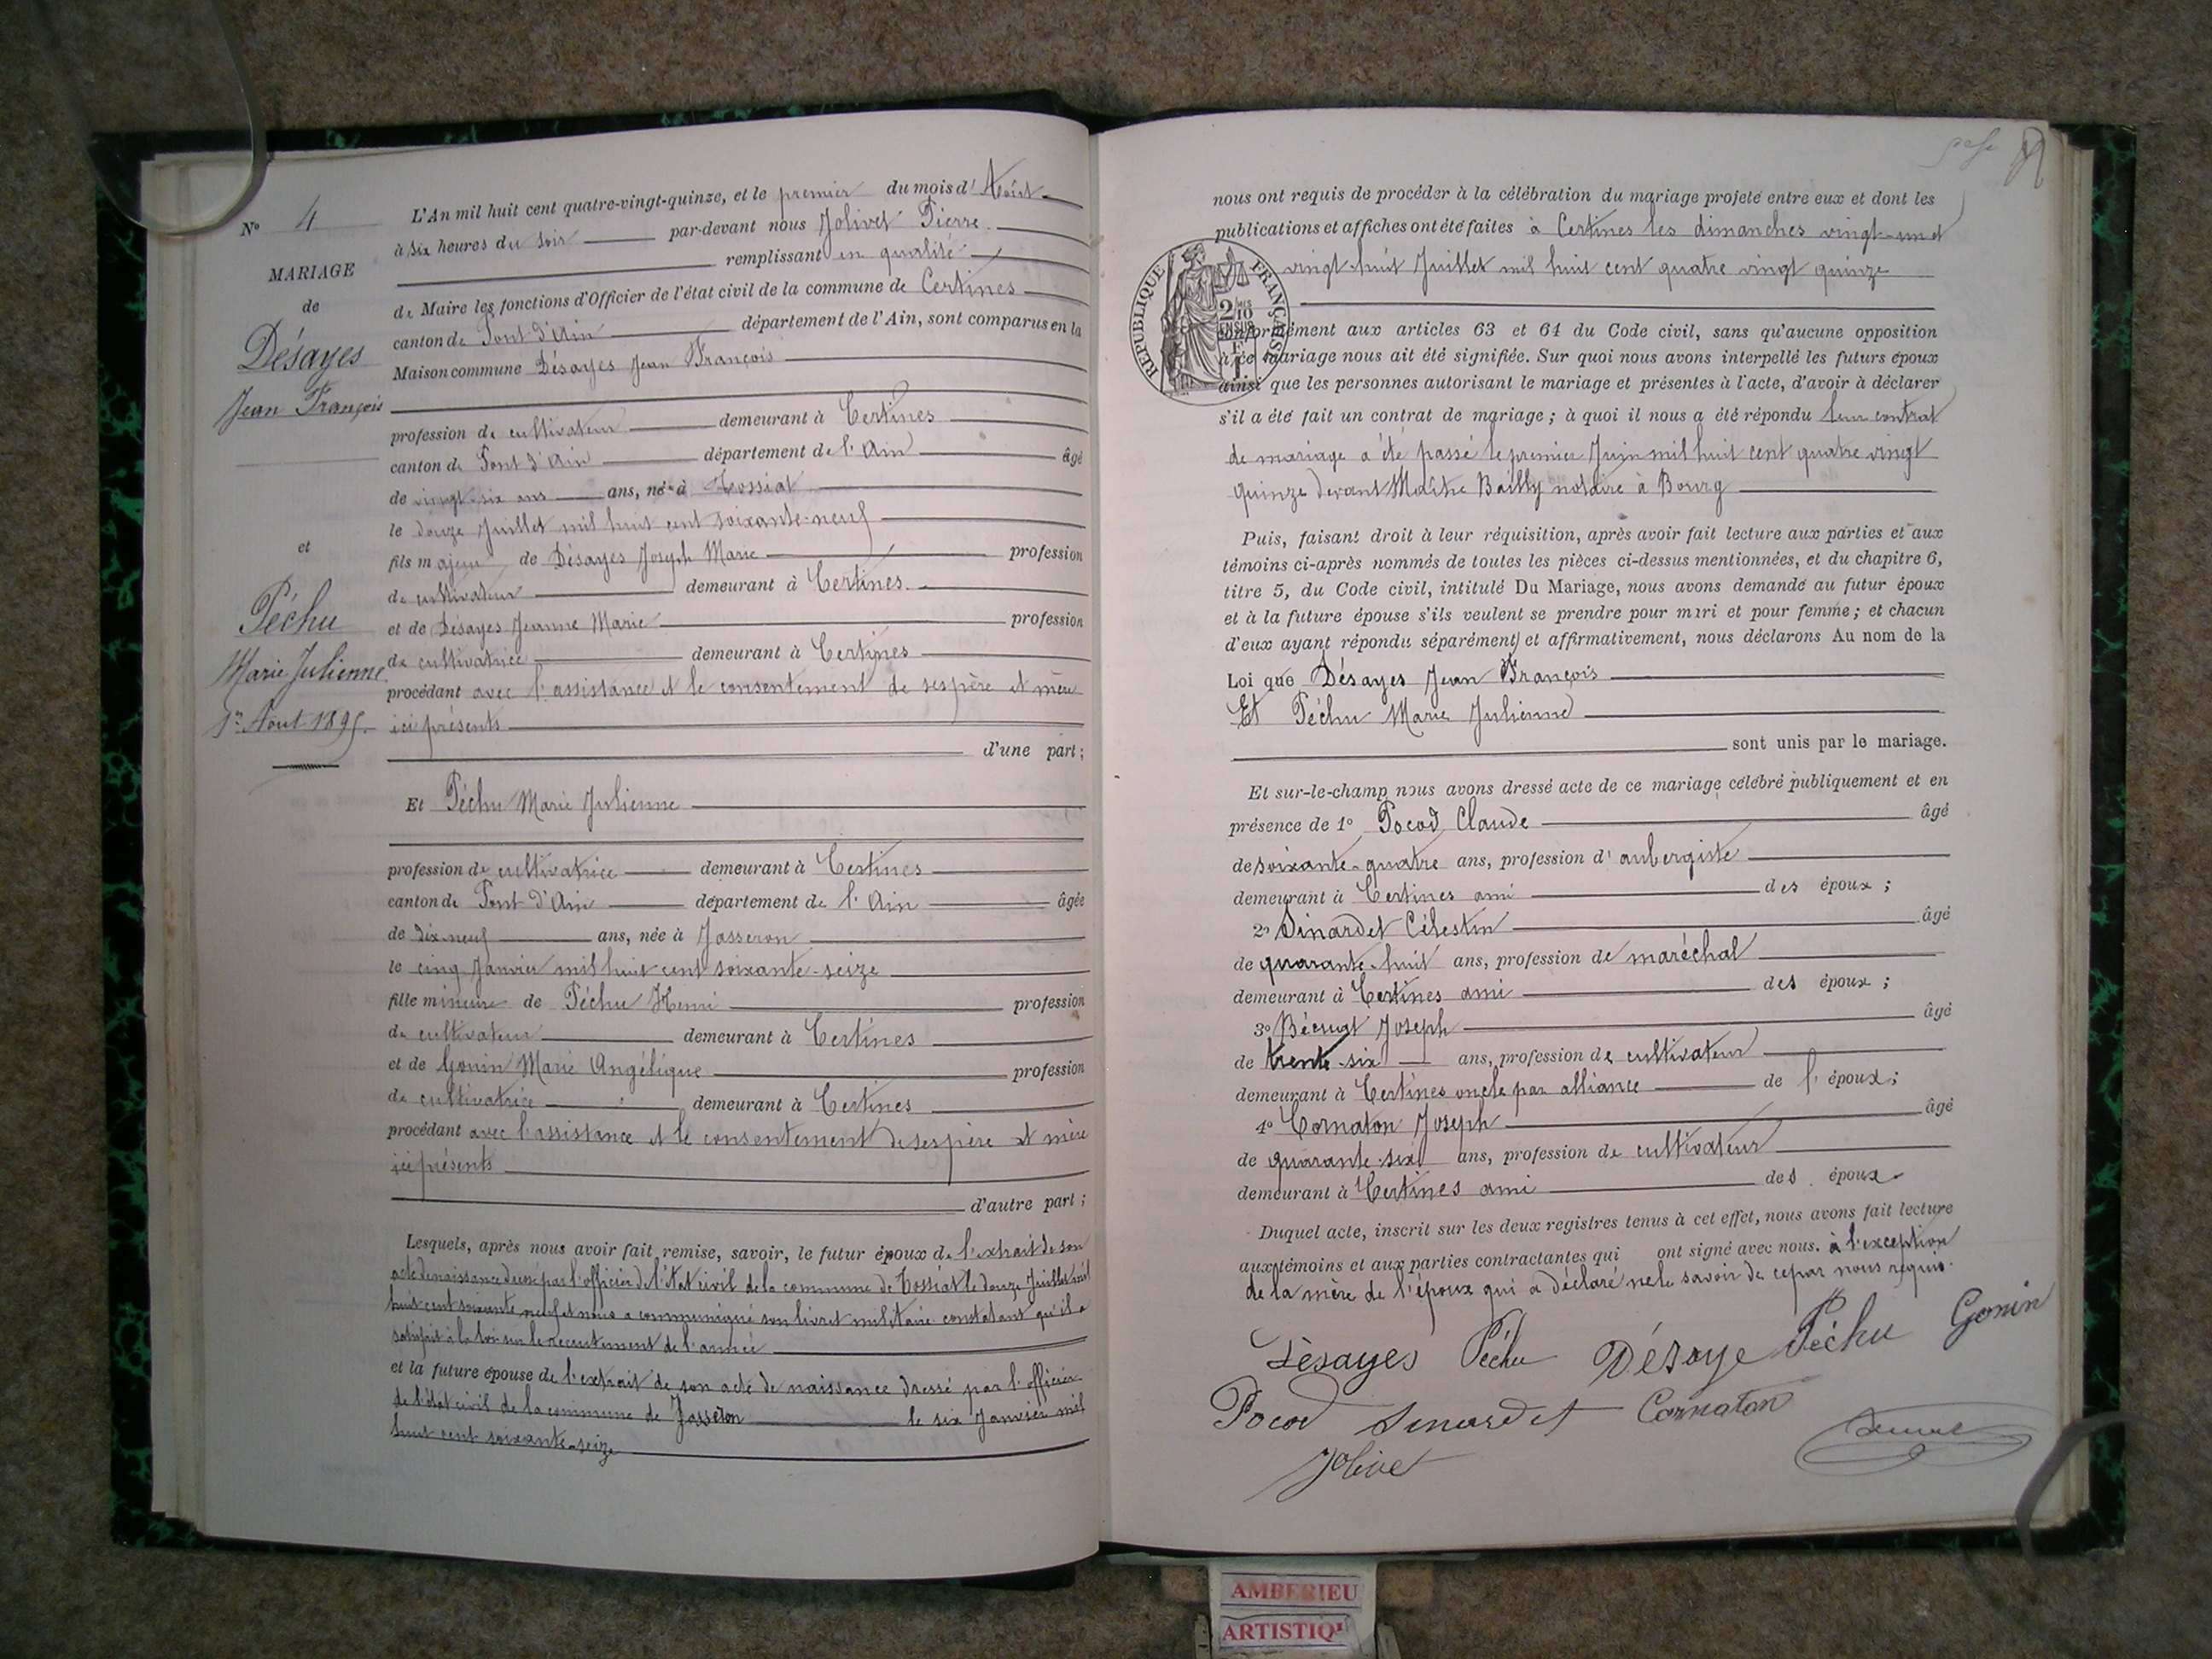 No 4
MARIAGE
de
Désayes
Jean François
et
Péchu
Marie Julienne
1er Aout 1895.
L'An mil huit cent quatre-vingt-quinze, et le premier du mois d'Août
à six heures du soir par-devant nous Jolivet Pierre
remplissant en qualité
de Maire les fonctions d'Officier de l'état civil de la commune de Certines
canton de Pont-d'Ain département de l'Ain, sont comparus en la
Maison commune Désayes Jean François
profession de cultivateur demeurant à Certines
canton de Pont d'Ain département de l'Ain âgé
de vingt-six ans ans, né à Tossiat
le douze Juillet mil huit cent soixante-neuf
fils majeur de Désayes Joseph Marie profession
de cultivateur demeurant à Certines.
et de Désayes Jeanne Marie profession
de cultivatrice demeurant à Certines
procédant avec l'assistance et le consentement de ses père et mère
ici présents
d'une part;
Et Péchu Marie Julienne
profession de cultivatrice demeurant à Certines
canton de Pont d'Ain département de l'Ain âgée
de dix-neuf ans, née à Jasseron
le cinq Janvier mil huit cent soixante-seize
fille mineure de Péchu Henri profession
de cultivateur demeurant à Certines
et de Gonin Marie Angélique profession
de cultivatrice demeurant à Certines
procédant avec l'assistance et le consentement de ses père et mère
ici présents
d'autre part;
Lesquels, après nous avoir fait remise, savoir, le futur époux de l'extrait de son
acte de naissance dressé par l'officier de l'état civil de la commune de Tossiat le douze Juillet mil
huit cent soixante neuf et nous a communiqué son livret militaire constatant qu'il a
satisfait à la loi sur le recrutement de l'armée
et la future épouse de l'extrait de son acte de naissance dressé par l'officier
de l'état civil de la commune de Jasseron le six Janvier mil
huit cent soixante-seize
nous ont requis de procéder à la célébration du mariage projeté entre eux et dont les
publications et affiches ont été faites à Certines les dimanches vingt-un et
vingt-huit Juillet mil huit cent quatre vingt quinze
REPUBLIQUE FRANÇAISE
conformément aux articles 63 et 64 du Code civil, sans qu'aucune opposition
à ce mariage nous ait été signifiée. Sur quoi nous avons interpellé les futurs époux
ainsi que les personnes autorisant le mariage et présentes à l'acte, d'avoir à déclarer
s'il a été fait un contrat de mariage; à quoi il nous a été répondu leur contrat
de mariage a été passé le premier Juin mil huit cent quatre vingt
quinze devant Maître Bailly notaire à Bourg
Puis, faisant droit à leur réquisition, après avoir fait lecture aux parties et aux
témoins ci-après nommés de toutes les pièces ci-dessus mentionnées, et du chapitre 6,
titre 5, du Code civil, intitulé Du Mariage, nous avons demandé au futur époux
et à la future épouse s'ils veulent se prendre pour mari et pour femme; et chacun
d'eux ayant répondu séparément et affirmativement, nous déclarons Au nom de la
Loi que Désayes Jean François
Et Péchu Marie Julienne
sont unis par le mariage.
Et sur-le-champ nous avons dressé acte de ce mariage célébré publiquement et en
présence de 1o Pocod Claude âgé
de soixante-quatre ans, profession d'aubergiste
demeurant à Certines ami des époux;
2o Sinardet Célestin âgé
de quarante-huit ans, profession de maréchal
demeurant à Certines ami des époux;
3o Joseph âgé
de trente-six ans, profession de cultivateur
demeurant à Certines oncle par alliance de l'époux;
4o Cornaton Joseph âgé
de quarante-six ans, profession de cultivateur
demeurant à Certines ami des époux.
Duquel acte, inscrit sur les deux registres tenus à cet effet, nous avons fait lecture
aux témoins et aux parties contractantes qui ont signé avec nous. à l'exception
de la mère de l'époux qui a déclaré ne le savoir de ce par nous requis.
Désayes Péchu Désaye Péchu Gonin
Pocod Sinardet Cornaton
Jolivet
AMBERIEU
ARTISTIQ